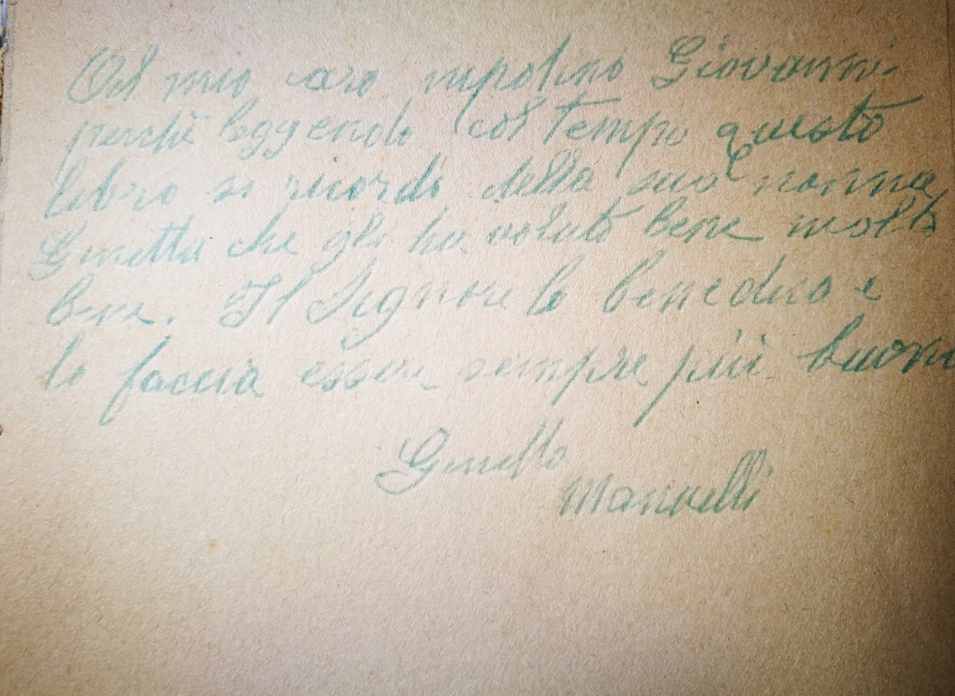 Al mio caro nipotino Giovanni
perché leggendo col tempo questo
libro si ricordi della sua nonna
Ginetta che gli ha voluto bene molto
bene. Il Signore lo benedica e
lo faccia essere sempre più buono
Ginetta